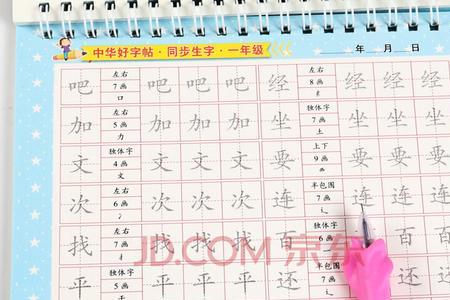 中华好字帖·同步生字·一年级 年 月 日
左右 左右
吧 7画 吧 吧 吧 经 8画 经 经 经
口 纟
左右 独体字
加 5画 加 加 加 坐 7画 坐 坐 坐
力 土
独体字 上下
文 4画 文 文 文 要 9画 要 要 要
文
左右 半包围
次 6画 次 次 次 连 7画 连 连 连
左右 独体字
找 7画 找 找 找 百 6画 百 百
扌
JD.COM 京东
独体字 半包围
平 5画 平 平 平 还 7画 还 还